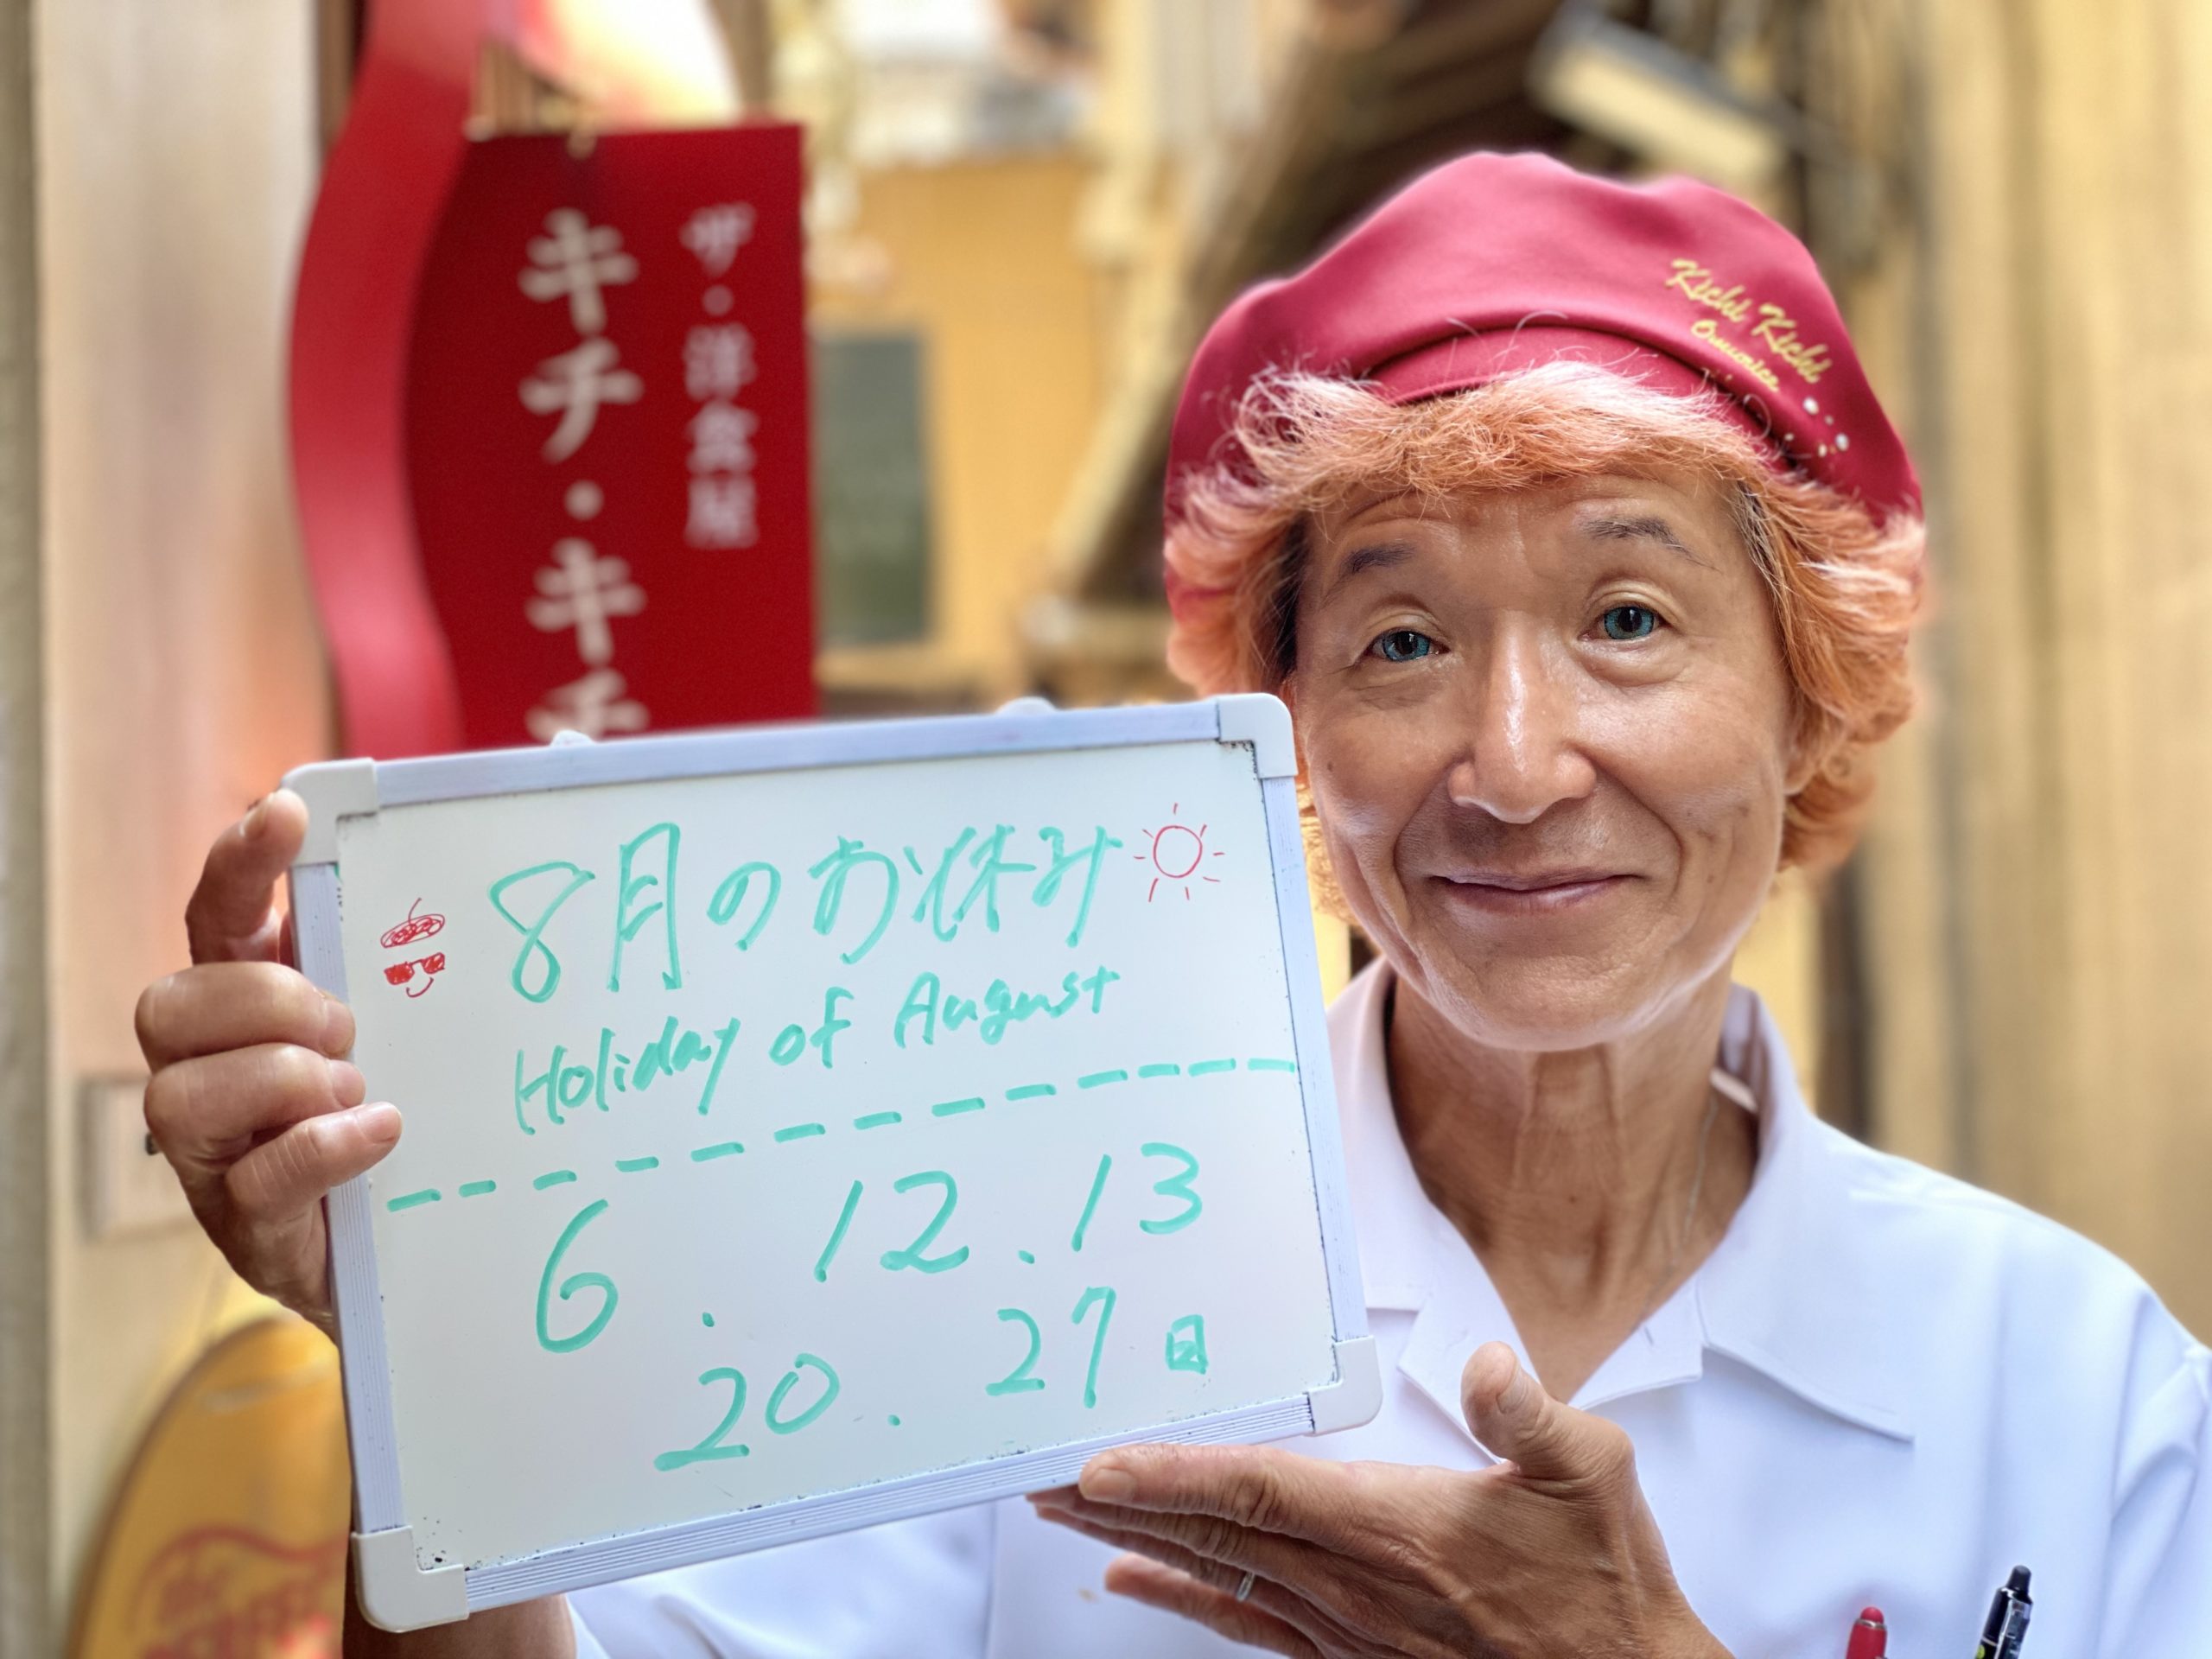 ザ・洋食屋
キチ・キチ
Kichi Kichi
Omurice
8月のお休み
Holiday of August
6 . 12 . 13
20 . 27日